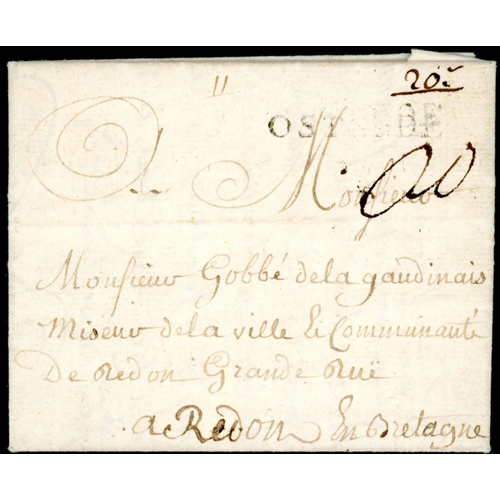 20s
11
OSTENDE
A Monsieur
20
Monsieur Gobbé de la gaudinais
Miseur de la ville & Communauté
De Redon Grande Ruë
a Redon En Bretagne